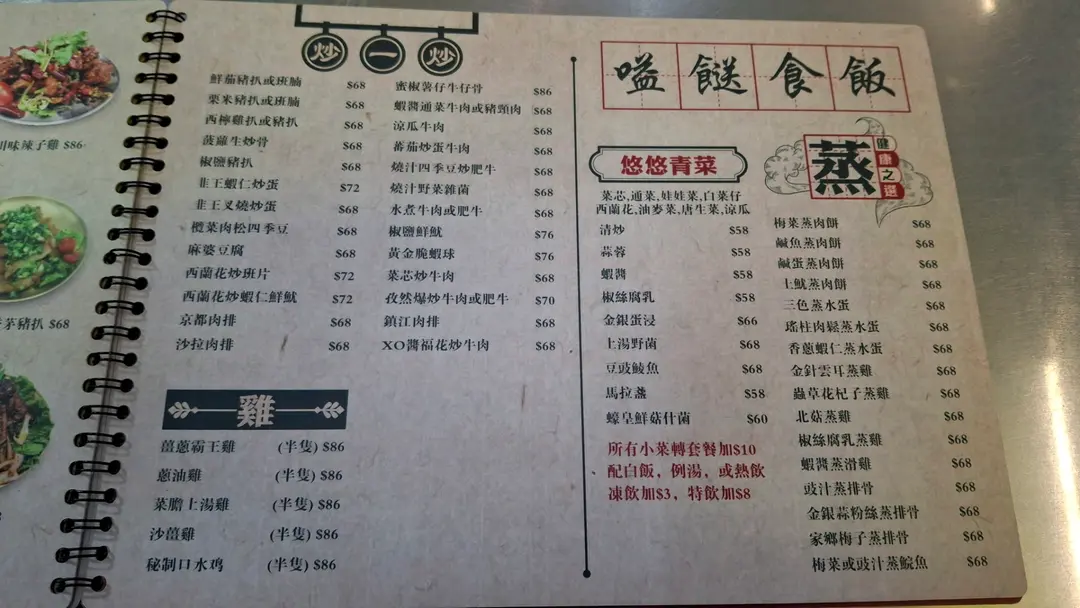 川味辣子雞 $86
茅豬扒 $68
炒一炒
鮮茄豬扒或班腩 $68
粟米豬扒或班腩 $68
西檸雞扒或豬扒 $68
菠蘿生炒骨 $68
椒鹽豬扒 $68
韭王蝦仁炒蛋 $72
韭王叉燒炒蛋 $68
欖菜肉松四季豆 $68
麻婆豆腐 $68
西蘭花炒班片 $72
西蘭花炒蝦仁鮮魷 $72
京都肉排 $68
沙拉肉排 $68
蜜椒薯仔牛仔骨 $86
蝦醬通菜牛肉或豬頸肉 $68
涼瓜牛肉 $68
蕃茄炒蛋牛肉 $68
燒汁四季豆炒肥牛 $68
燒汁野菜雜菌 $68
水煮牛肉或肥牛 $68
椒鹽鮮魷 $76
黃金脆蝦球 $76
菜芯炒牛肉 $68
孜然爆炒牛肉或肥牛 $70
鎮江肉排 $68
XO醬福花炒牛肉 $68
雞
薑蔥霸王雞 (半隻) $86
蔥油雞 (半隻) $86
菜膽上湯雞 (半隻) $86
沙薑雞 (半隻) $86
秘制口水鸡 (半隻) $86
嗌餸食飯
悠悠青菜
菜芯,通菜,娃娃菜,白菜仔
西蘭花,油麥菜,唐生菜,涼瓜
清炒 $58
蒜蓉 $58
蝦醬 $58
椒絲腐乳 $58
金銀蛋浸 $66
上湯野菌 $68
豆豉鯪魚 $68
馬拉盞 $58
蠔皇鮮菇什菌 $60
所有小菜轉套餐加$10
配白飯，例湯，或熱飲
凍飲加$3，特飲加$8
蒸
健康之選
梅菜蒸肉餅 $68
鹹魚蒸肉餅 $68
鹹蛋蒸肉餅 $68
土魷蒸肉餅 $68
三色蒸水蛋 $68
瑤柱肉鬆蒸水蛋 $68
香蔥蝦仁蒸水蛋 $68
金針雲耳蒸雞 $68
蟲草花杞子蒸雞 $68
北菇蒸雞 $68
椒絲腐乳蒸雞 $68
蝦醬蒸滑雞 $68
豉汁蒸排骨 $68
金銀蒜粉絲蒸排骨 $68
家鄉梅子蒸排骨 $68
梅菜或豉汁蒸鯇魚 $68